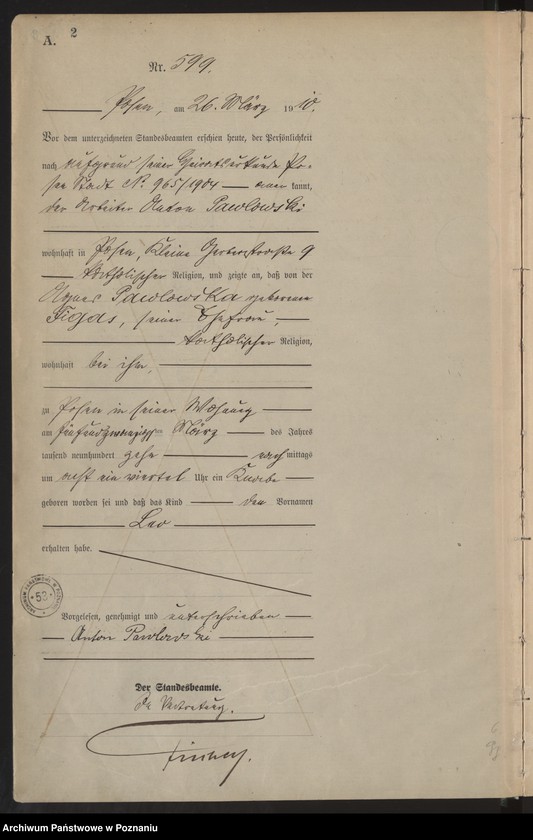 2
A.
Nr. 599.
Posen, am 26. März 1910.
Vor dem unterzeichneten Standesbeamten erschien heute, der Persönlichkeit
nach aufgrund seiner Heiratsurkunde Po-
sen Stadt No. 965/1904 kannt,
der Arbeiter Anton Pawlowski
wohnhaft in Posen, Kleine Gerberstraße 9
katholischer Religion, und zeigte an, daß von der
Agnes Pawlowska geborene
Figas, seiner Ehefrau,
katholischer Religion,
wohnhaft bei ihm,
zu Posen in seiner Wohnung
am fünfundzwanzigsten März des Jahres
tausend neunhundert zehn nachmittags
um acht ein viertel Uhr ein Knabe
geboren worden sei und daß das Kind den Vornamen
Leo
erhalten habe.
ARCHIWUM PAŃSTWOWE W POZNANIU
53
Vorgelesen, genehmigt und unterschrieben
Anton Pawlowski
Der Standesbeamte.
In Vertretung.
Archiwum Państwowe w Poznaniu